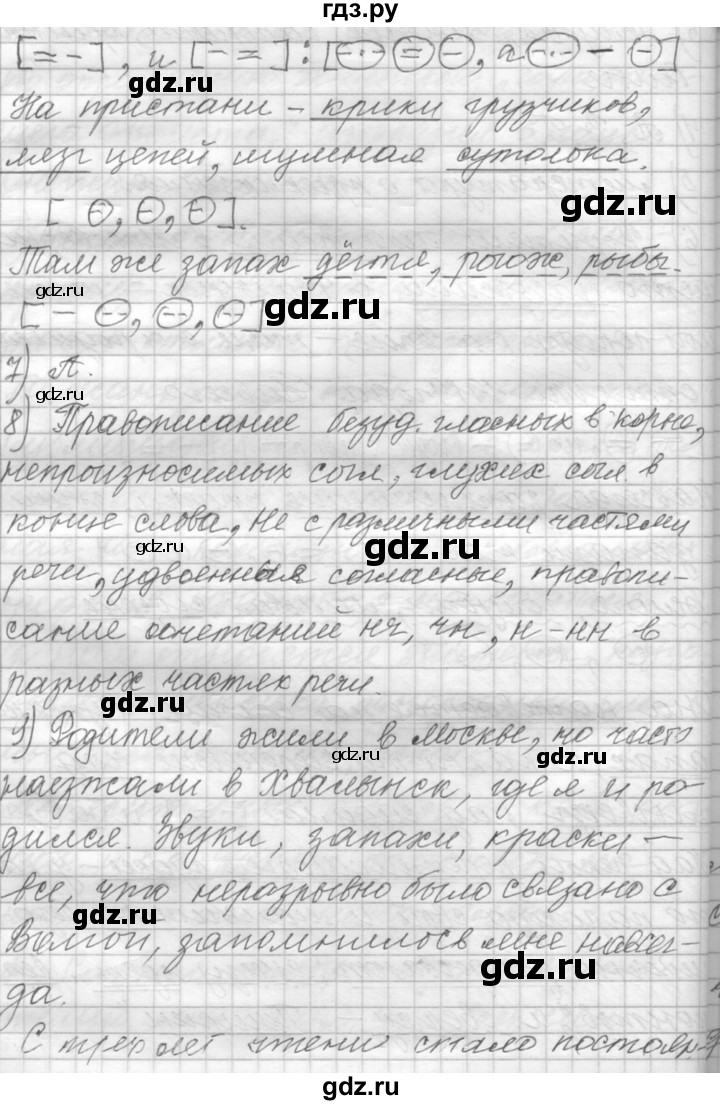 гдз.ру
[= -], и [- =]: [⊖··⊖ ⊜ ⊖, а ⊖··⊖ - ⊖]
На пристани – крики грузчиков,
лязг цепей, шумная сутолока.
gdz.ru
[⊖, ⊖, ⊖].
Там же запах дёгтя, рогож, рыбы.
gdz.ru
gdz.ru
[- ⊖, ⊖, ⊖]
7) А.
gdz.ru
8) Правописание безуд. гласных в корне,
непроизносимых согл., глухих согл. в
конце слова, не с различными частями
gdz.ru
gdz.ru
речи, удвоенные согласные, правопи-
сание сочетаний нч, чн, н-нн в
разных частях речи.
gdz.ru
9) Родители жили в Москве, но часто
gdz.ru
gdz.ru
наезжали в Хвалынск, где я и ро-
дился. Звуки, запахи, краски –
все, что неразрывно было связано с
gdz.ru
Волгой, запомнилось мне навсег-
gdz.ru
да.
С трех лет чтение стало постоян-
gdz.ru